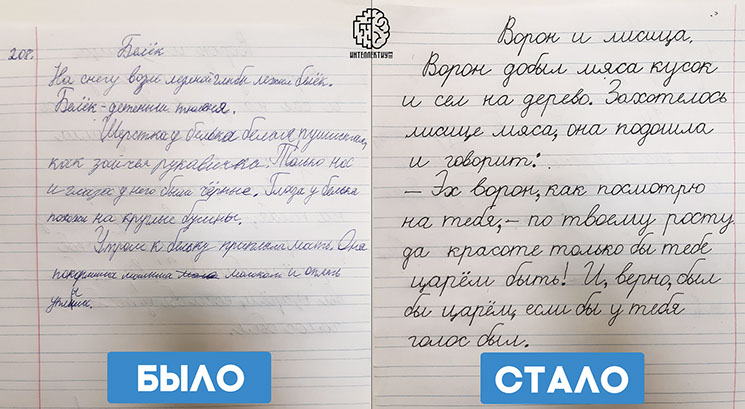 ИНТЕЛЛЕКТИУМ
208.
Белёк
На снегу возле ледяной глыбы лежал белёк.
Белёк - детёныш тюленя.
Шёрстка у белька белая пушистая,
как заячья рукавичка. Только нос
и глаза у него были чёрные. Глаза у белька
похожи на круглые бусины.
Утром к бельку приплыла мать. Она
покормила малыша молоком и опять
уплыли.
БЫЛО
Ворон и лисица.
Ворон добыл мяса кусок
и сел на дерево. Захотелось
лисице мяса, она подошла
и говорит:
– Эх ворон, как посмотрю
на тебя, – по твоему росту
да красоте только бы тебе
царём быть! И, верно, был
бы царём, если бы у тебя
голос был.
СТАЛО